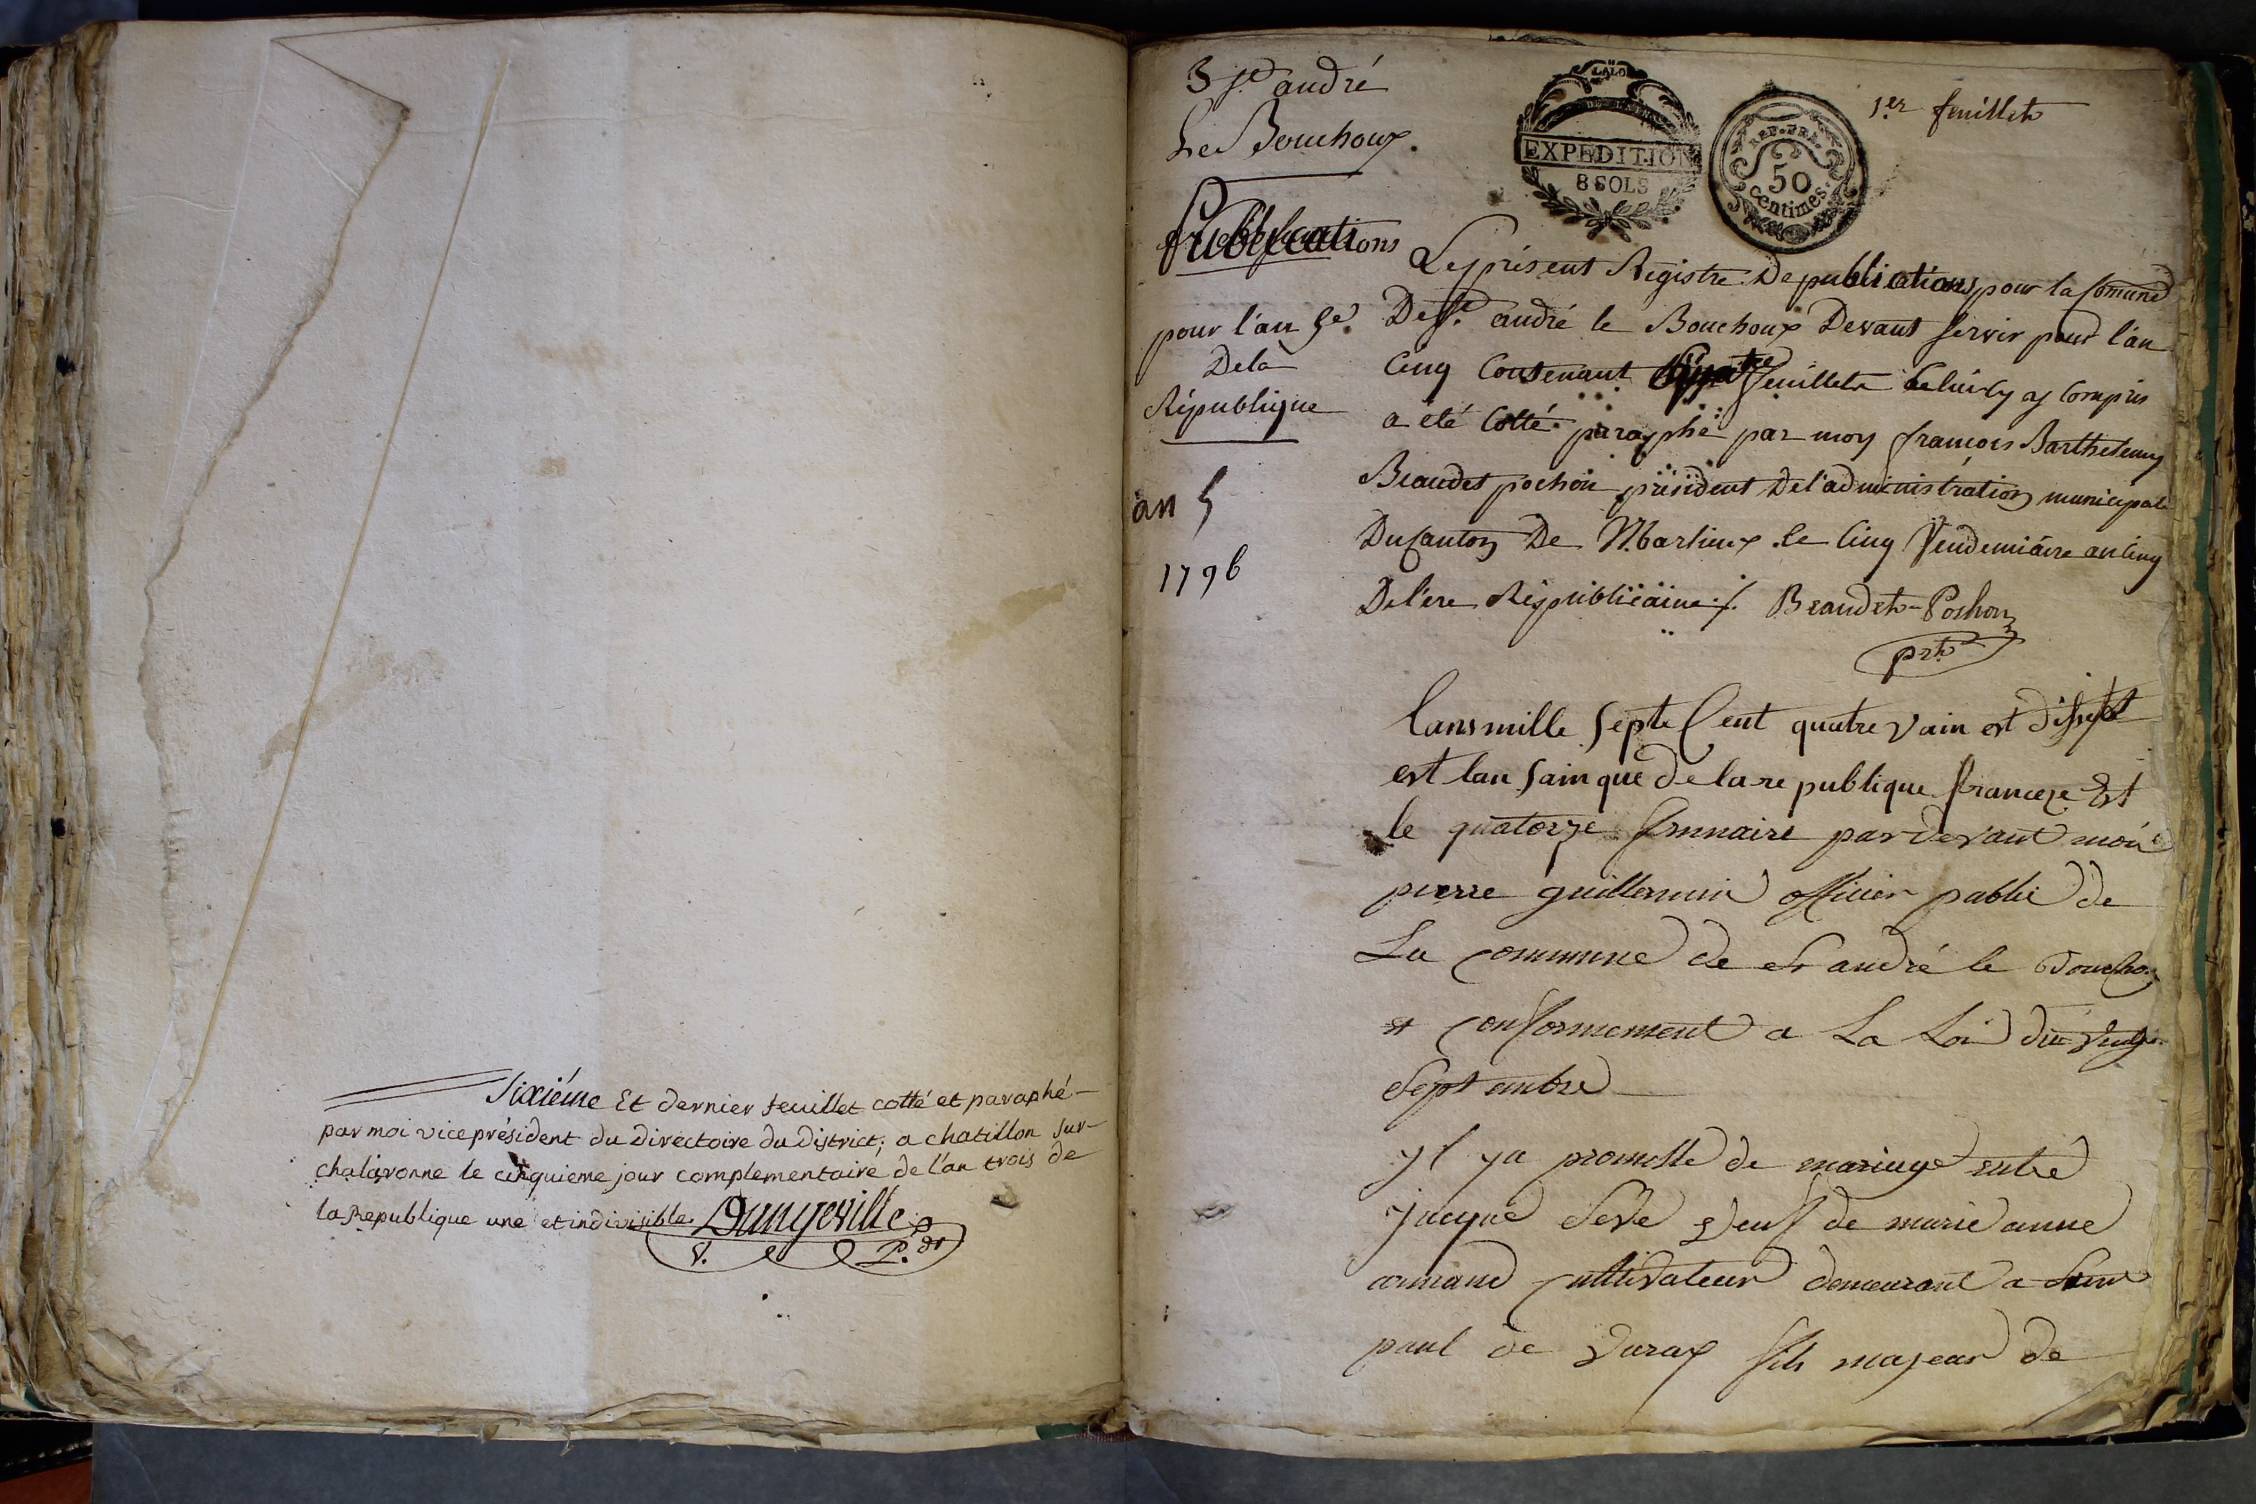 Sixiéme Et dernier feuillet cotté et paraphé
par moi vice président du directoire du District, a chatillon sur-
chalaronne le cinquieme jour complementaire de l'an trois de
la Republique une et indivisible. Dangeville
V. P.dt
3 St. andré
Le Bouchoux.
Publications
pour l'an 5e.
Dela
République
an 5
1796
LALOI
EXPEDITION
8 SOLS
REP. FRA.
50
Centimes.
1er feuillet
Le présent Régistre De publications pour la Comune
De St. andré le Bouchoux Devant servir pour l'an
Cinq Contenant feuillets Celui-cy y Compris
a été Cotté paraphé par moy françois Barthelemy
Beaudet pochon président De l'administration municipale
Du Canton De Marlieux le Cinq Vendemiaire an Cinq
De l'ere Républicaine ./. Beaudet-Pochon
prt
lans mille septe Cent quatre vain est disept
est lan sainque de la re publique franceze Est
le quatorze frimaire pardevant moi
pierre guillermin officier public de
La commune de st andré le Bouchoux
et conformement a La Loi du vingt
Septembre
yl ya promesse de mariage entre
jacque Seve veuf de marie anne
armand cultivateur demeurant a Saint
paul de varax fils majeur de